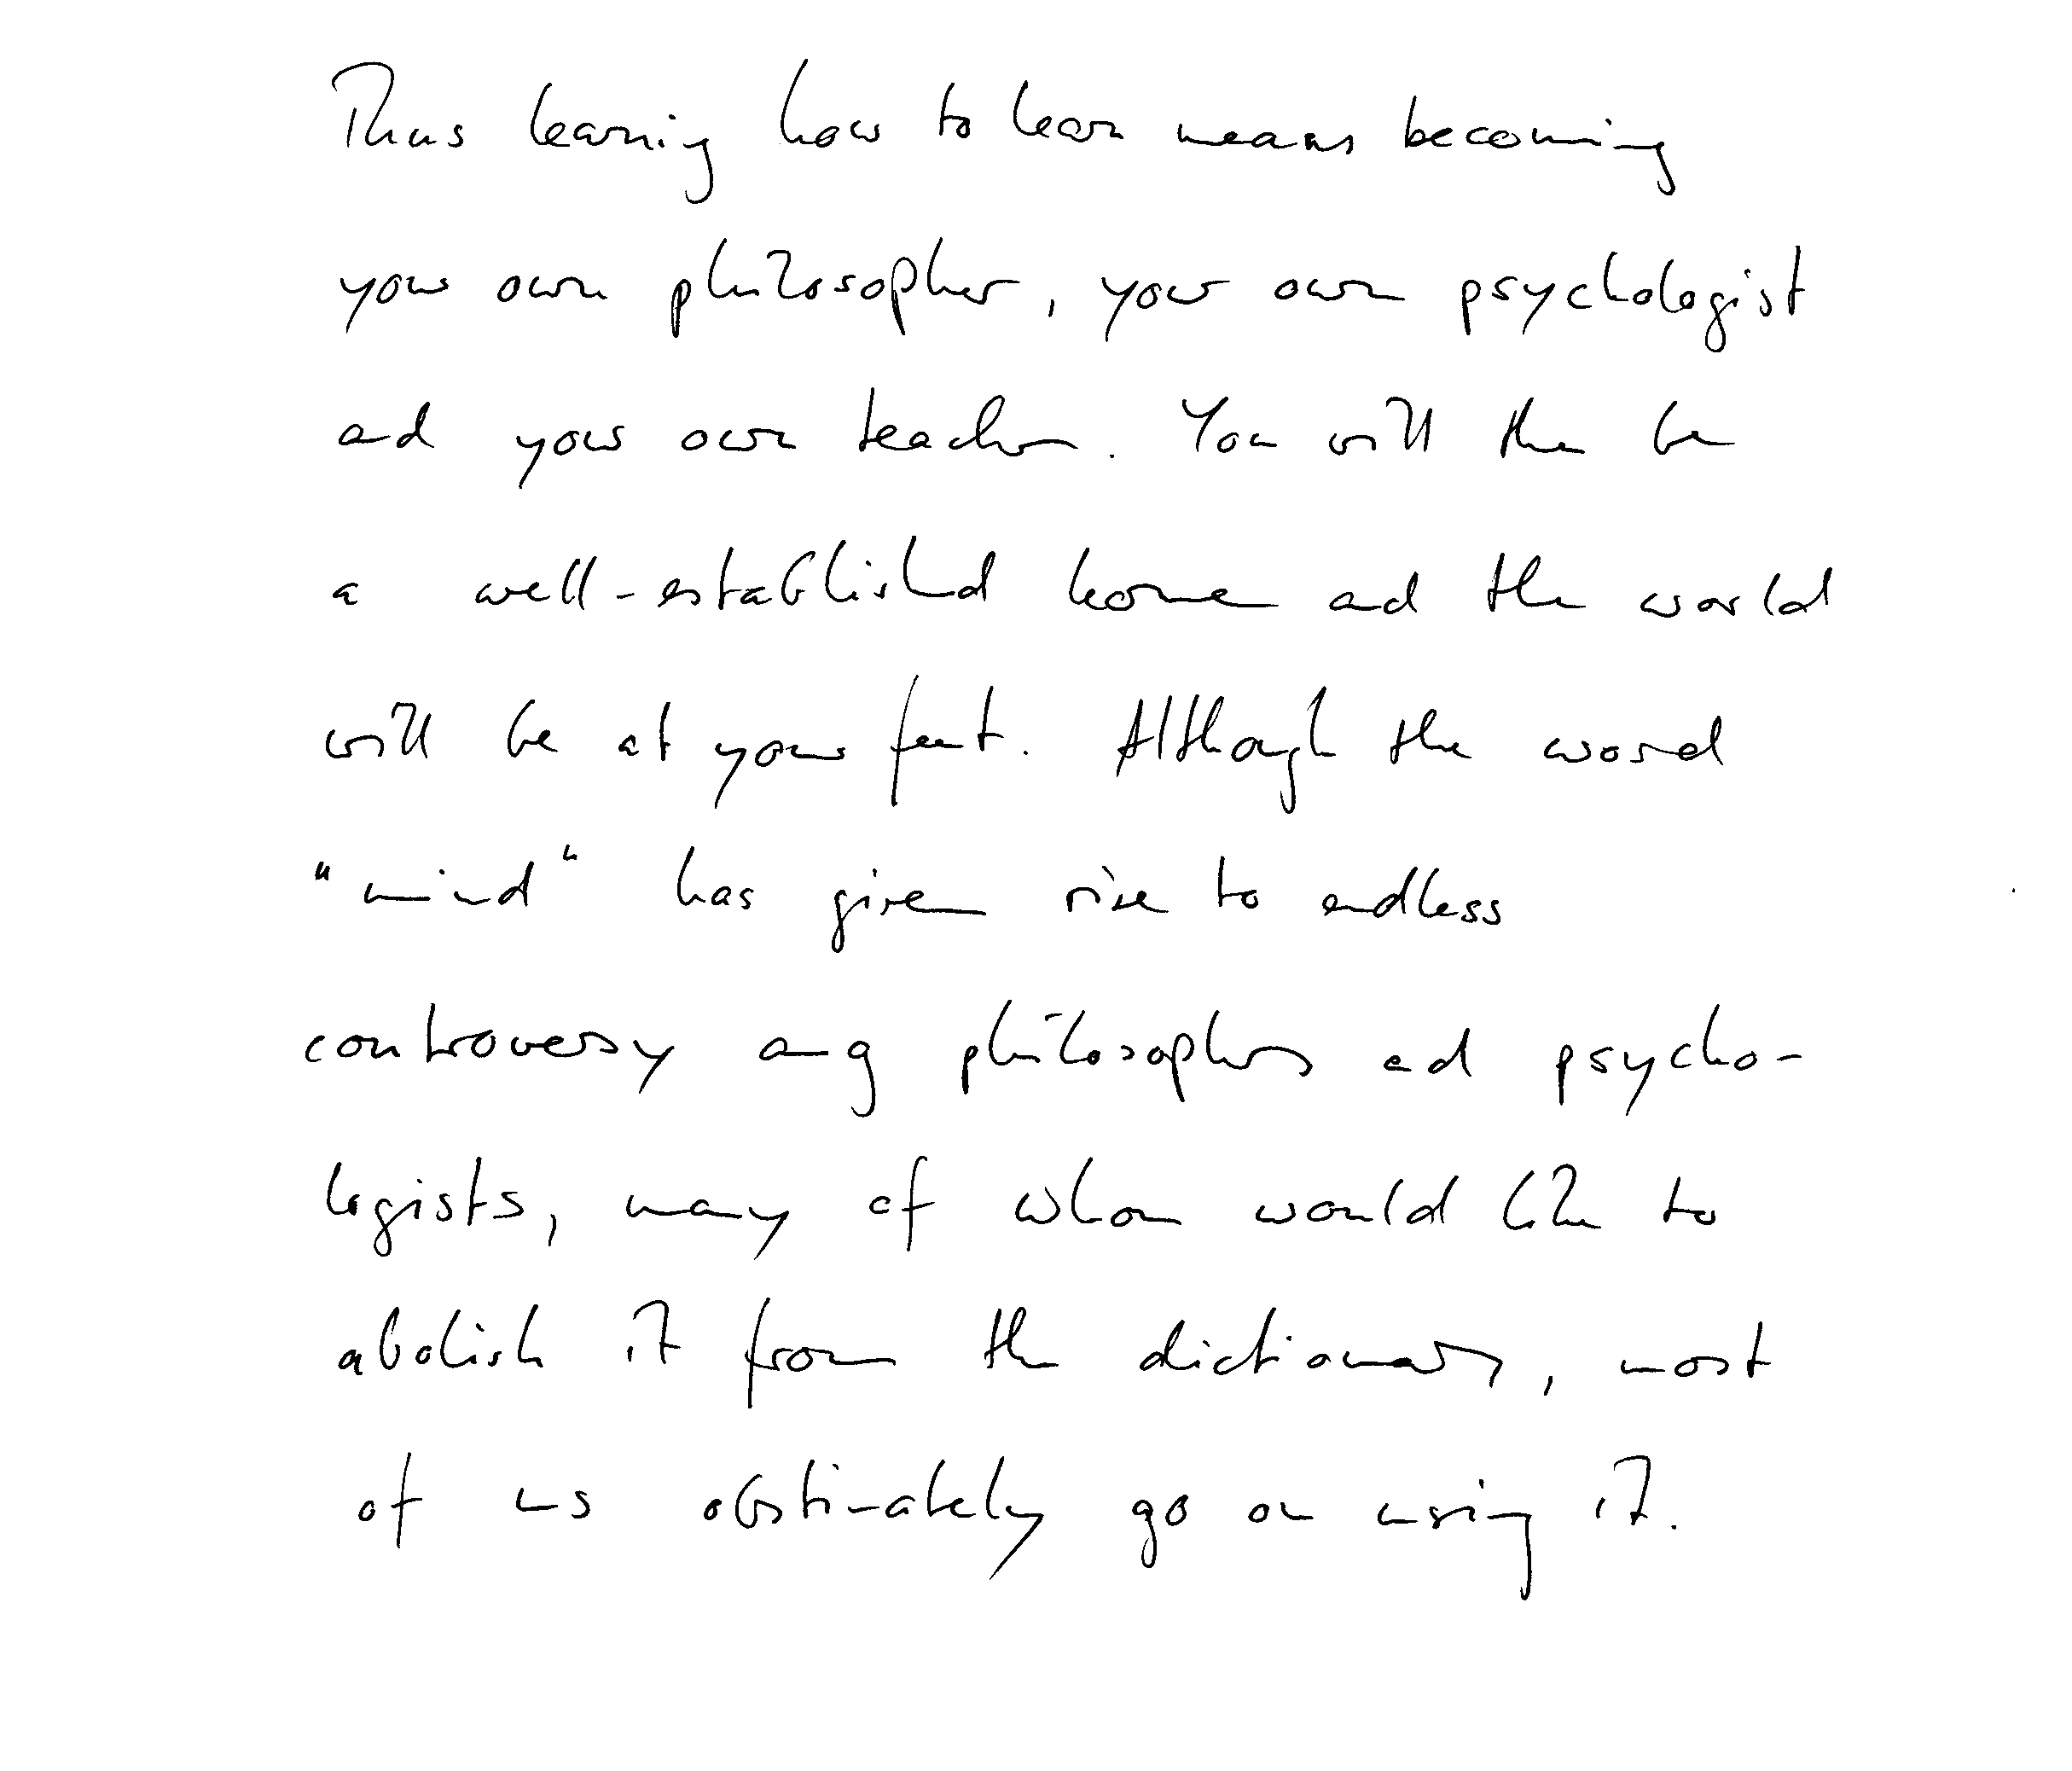 Thus learning how to learn means becoming
your own philosopher, your own psychologist
and your own teacher. You will then be
a well-established learner and the world
will be at your feet. Although the word
"mind" has given rise to endless
controversy among philosophers and psycho-
logists, many of whom would like to
abolish it from the dictionary, most
of us obstinately go on using it.